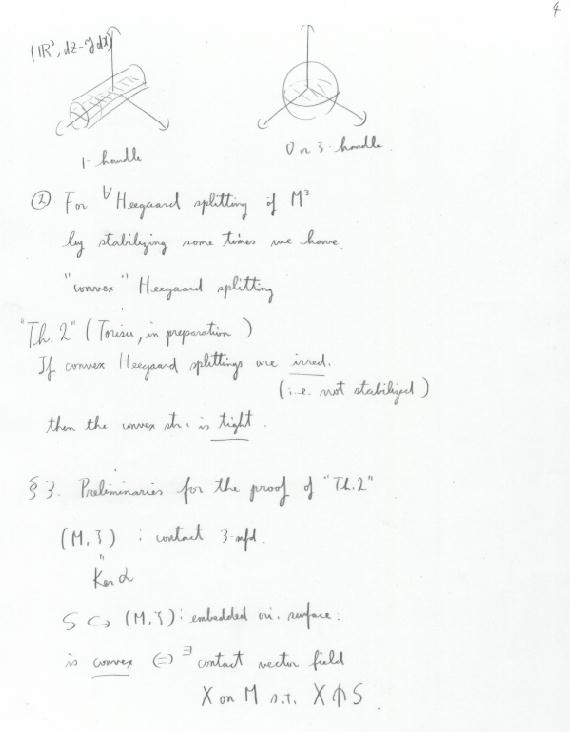 4
(ℝ³, dz-ydx)
1-handle
0 or 3-handle.
② For ∀Heegaard splitting of M³
by stabilizing some times we have
"convex" Heegaard splitting
"Th. 2" (Torisu, in preparation)
If convex Heegaard splittings are irred.
(i.e. not stabilized)
then the convex str. is tight.
§3. Preliminaries for the proof of "Th.2"
(M, ξ) : contact 3-mfd.
"
Ker α
S ↪ (M, ξ) : embedded ori. surface.
is convex ⇔ ∃contact vector field
X on M s.t. X ⋔ S.